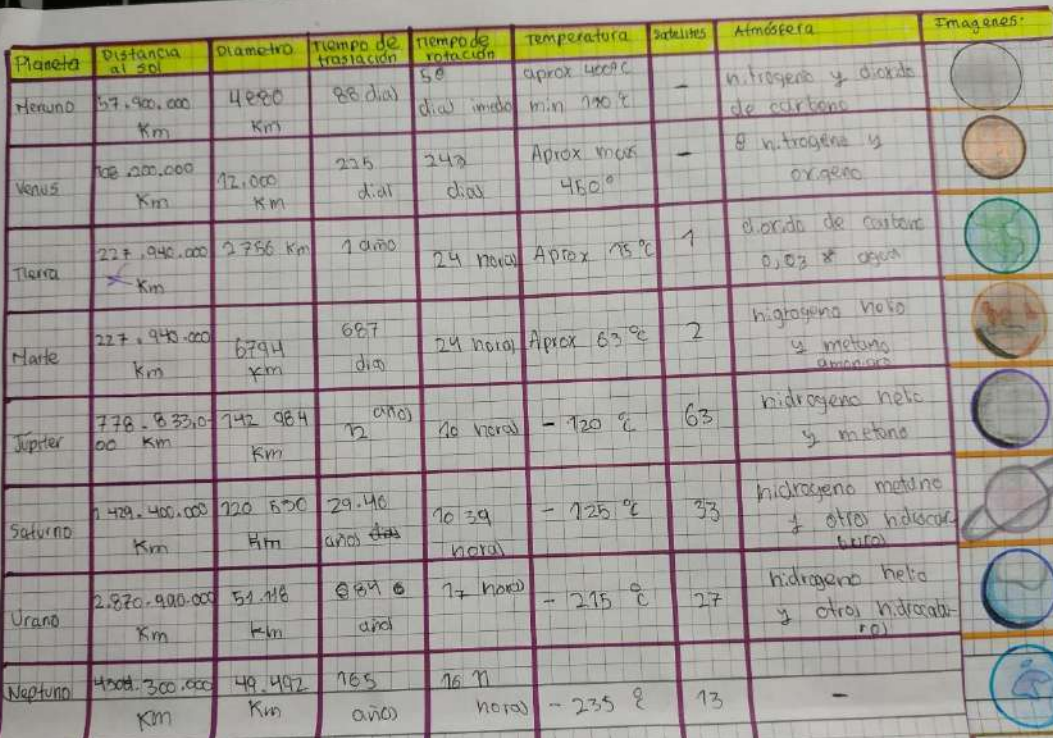 Planeta
Distancia
al sol
Diametro
Tiempo de
traslación
Tiempo de
rotación
Temperatura
Satelites
Atmósfera
Imagenes:
57.900.000
Km
4880
Km
88 dias
58
dias
aprox 400°C
min 170 °C
-
nitrogeno y dioxido
de carbono
Venus
108.200.000
Km
12.000
Km
225
dias
243
dias
Aprox max
460°
-
nitrogeno y
oxigeno
Tierra
227.940.000
Km
2756 Km
1 año
24 horas
Aprox 15 °C
1
dioxido de carbono
0,03 * agua
Marte
227.940.000
Km
6794
Km
687
dias
24 horas
Aprox 63 °C
2
higrogeno helio
y metano
amoniaco
Jupiter
778.833.0
00 Km
142 984
Km
años
12
10 horas
- 120 °C
63
hidrogeno helio
y metano
Saturno
1 429.400.000
Km
120 530
Km
29.46
años
10 39
horas
- 125 °C
33
hidrogeno metano
y otros hidrocar
Urano
2.870.990.000
Km
51.118
Km
84
años
17 horas
- 215 °C
27
hidrogeno helio
y otros hidrocabu-
ros
Neptuno
300.000
KM
49.492
Km
165
años
16 11
horas
- 235 °C
13
-